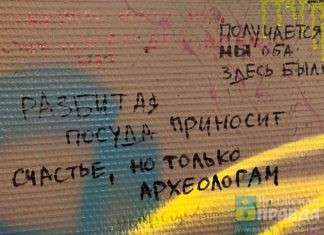 ПОЛУЧАЕТСЯ
МЫ ОБА
ЗДЕСЬ БЫЛИ
РАЗБИТАЯ
ПОСУДА ПРИНОСИТ
СЧАСТЬЕ, НО ТОЛЬКО
АРХЕОЛОГАМ
ПРАВДА